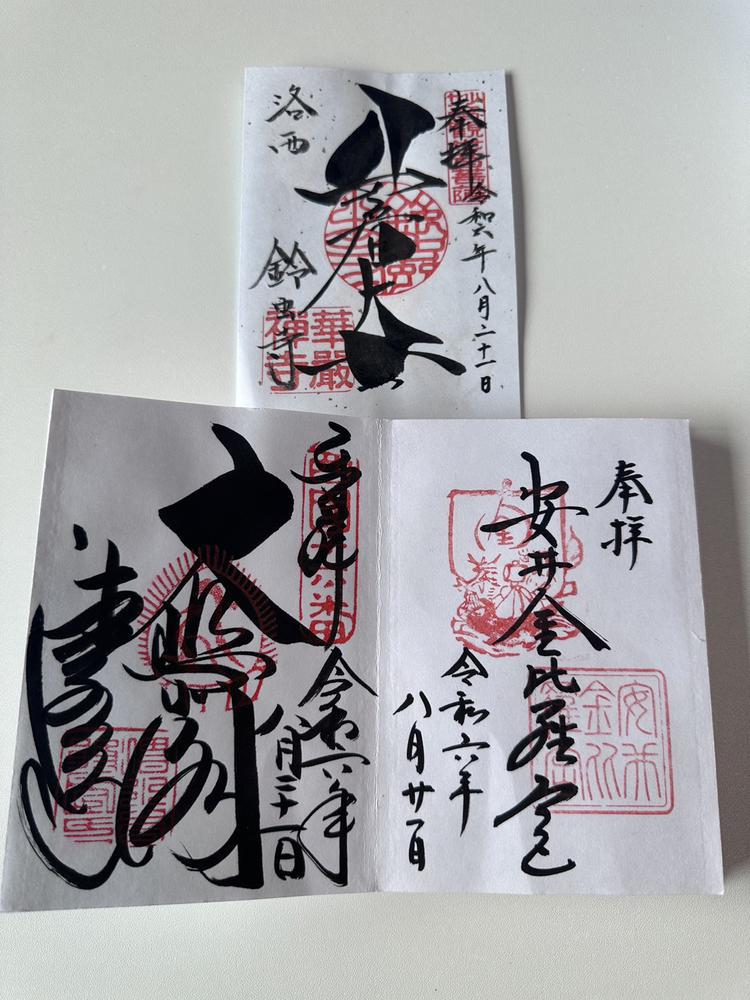 奉拝
令和六年八月二十一日
洛西
鈴虫寺
華嚴
禅寺
奉拝
安井金比羅宮
令和六年
八月廿一日
奉拝
令和六年
八月二十一日
大悲閣
清水寺